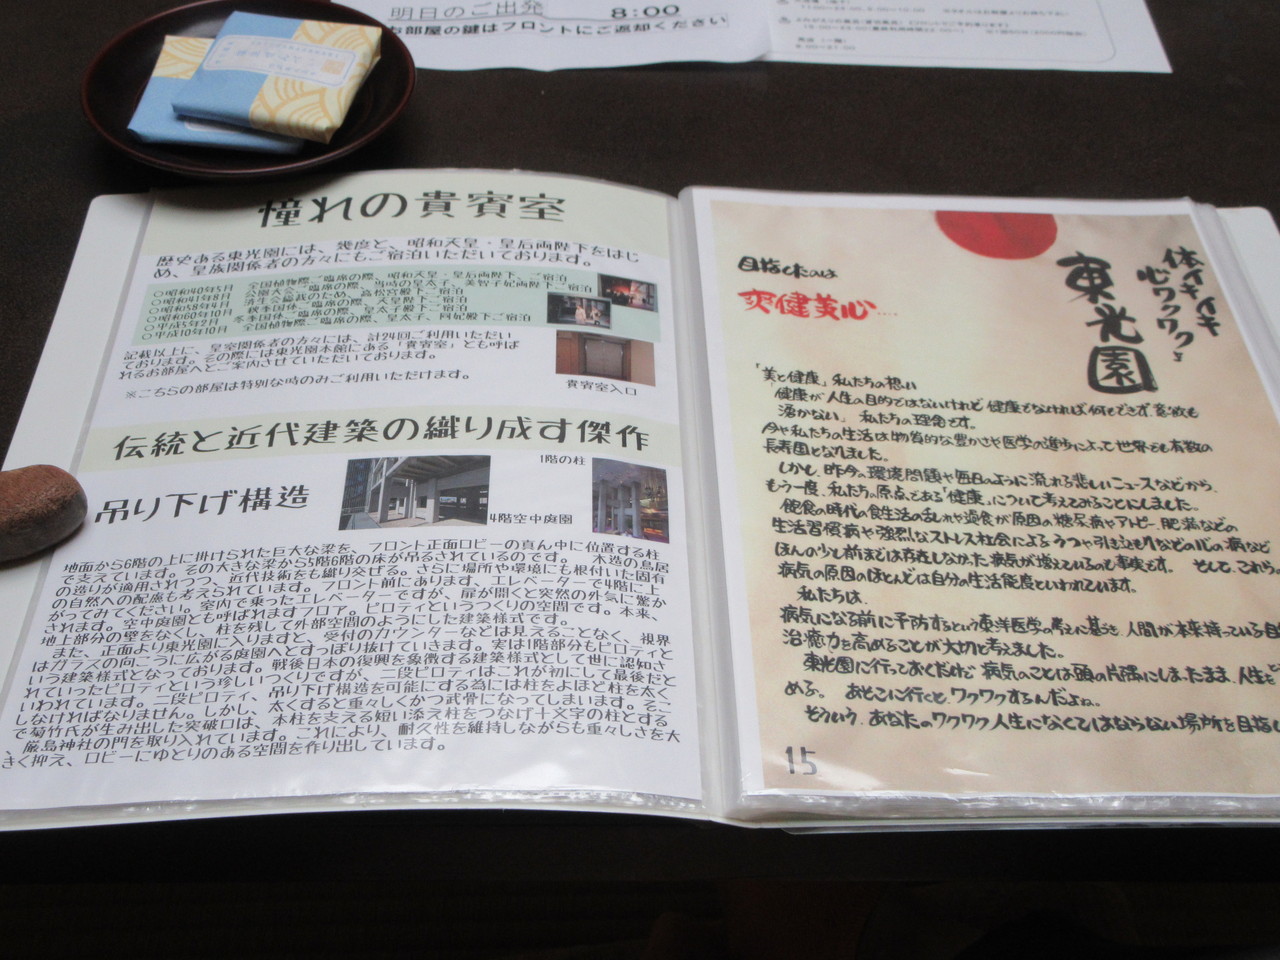 明日のご出発 8:00
お部屋の鍵はフロントにご返却ください
憧れの貴賓室
歴史ある東光園には、幾度と、昭和天皇・皇后両陛下をはじ
め、皇族関係者の方々にもご宿泊いただいております。
○昭和40年5月 全国植樹際ご臨席の際、昭和天皇・皇后両陛下、ご宿泊
○昭和41年8月 公園大会ご臨席の際、当時の皇太子、美智子妃両陛下ご宿泊
○昭和58年4月 済生会総裁のため、高松宮殿下、ご宿泊
○昭和60年10月 秋季国体ご臨席の際、天皇陛下、ご宿泊
○平成5年2月 冬季国体ご臨席の際、皇太子殿下、ご宿泊
○平成10年10月 全国植樹際ご臨席の際、皇太子、同妃殿下ご宿泊
記載以上に、皇室関係者の方々には、計24回ご利用いただい
ております。その際には東光園本館にある「貴賓室」とも呼ば
れるお部屋へとご案内させていただいております。
※こちらの部屋は特別な時のみご利用いただけます。
貴賓室入口
伝統と近代建築の織り成す傑作
吊り下げ構造
4階空中庭園
1階の柱
地面から6階の上に掛けられた巨大な梁を、フロント正面ロビーの真ん中に位置する柱
で支えています。その大きな梁から5階6階の床が吊るされているのです。 木造の鳥居
の造りが適用されつつ、近代技術をも織り交ぜる。さらに場所や環境にも根付いた固有
の自然への配慮も考えられています。フロント前にあります、エレベーターで4階に上
がってみてください。室内で乗ったエレベーターですが、扉が開くと突然の外気に驚か
されます。空中庭園とも呼ばれますフロア。ピロティというつくりの空間です。本来、
地上部分の壁をなくし、柱を残して外部空間のようにした建築様式です。
また、正面より東光園に入りますと、受付のカウンターなどは見えることなく、視界
はガラスの向こうに広がる庭園へとすっぽり抜けていきます。実は1階部分もピロティと
いう建築様式となっております。戦後日本の復興を象徴する建築様式として世に認知さ
れていったピロティという珍しいつくりですが、二段ピロティはこれが初にして最後だと
いわれています。二段ピロティ、吊り下げ構造を可能にする為には柱をよほど柱を太く
しなければなりません。しかし、太くすると重々しくかつ武骨になってしまいます。そこ
で菊竹氏が生み出した突破口は、本柱を支える短い添え柱をつなげ十文字の柱とする
、厳島神社の門を取り入れています。これにより、耐久性を維持しながらも重々しさを大
きく抑え、ロビーにゆとりのある空間を作り出しています。
体イキイキ
心ワクワク
東光園
目指したのは
爽健美心....
「美と健康」私たちの想い
「健康が人生の目的ではないけれど健康でなければ何もできず意欲も
湧かない」私たちの理念です。
今や私たちの生活は物質的な豊かさや医学の進歩によって世界でも有数の
長寿国となりました。
しかし、昨今の環境問題や毎日のように流れる悲しいニュースなどから、
もう一度、私たち原点である「健康」について考えてみることにしました。
飽食の時代の食生活の乱れや過食が原因の糖尿病やアトピー、肥満などの
生活習慣病や強烈なストレス社会によるうつや引きこもりなどの心の病など
ほんの少し前までは存在しなかった病気が増えているのも事実です。 そして、これらの
病気の原因のほとんどは自分の生活態度といわれています。
私たちは、
病気になる前に予防するという東洋医学の考えに基づき、人間が本来持っている自
治癒力を高めることが大切と考えました。
東光園に行っておくだけで 病気のことは頭の片隅にしまったまま、人生を
める。 あそこに行くと、ワクワクするんだよね。
そういう、あなたのワクワク人生になくてはならない場所を目指し
15